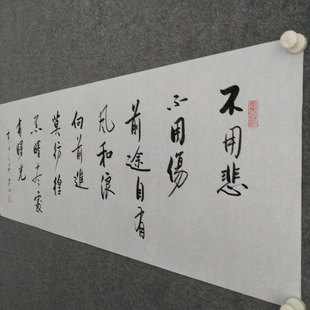 不用悲
不用傷
前途自有
風和浪
向前進
莫彷徨
黑暗盡處
有曙光